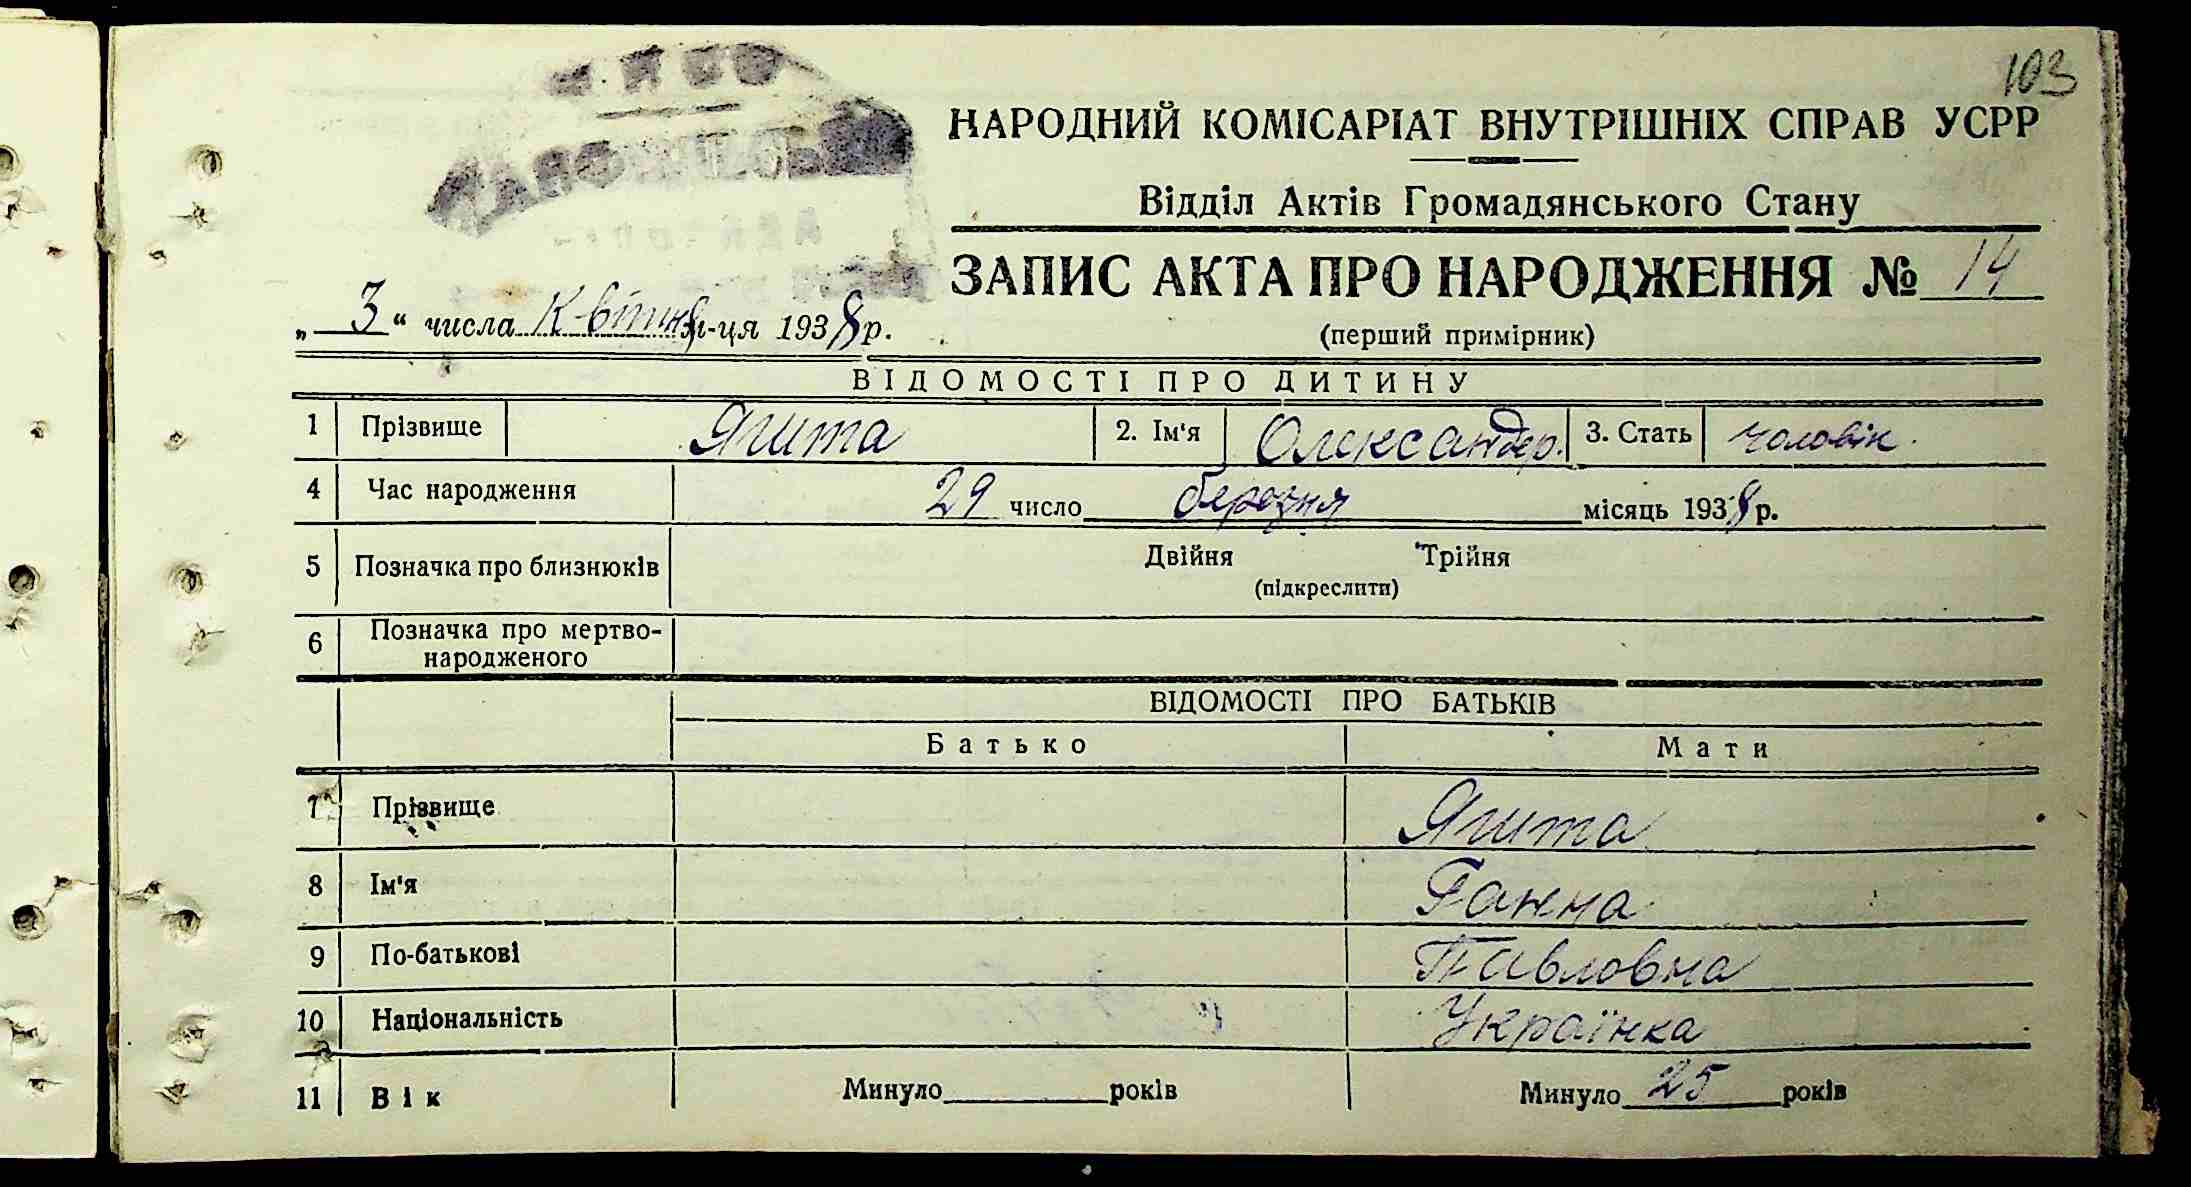 103
НАРОДНИЙ КОМІСАРІАТ ВНУТРІШНІХ СПРАВ УСРР
Відділ Актів Громадянського Стану
ЗАПИС АКТА ПРО НАРОДЖЕННЯ № 14
„ 3 “ числа Квітня м-ця 1938 р.
(перший примірник)
ВІДОМОСТІ ПРО ДИТИНУ
1 Прізвище Яшта 2. Ім'я Олександер. 3. Стать чоловік.
4 Час народження 29 число березня місяць 1938 р.
5 Позначка про близнюків Двійня Трійня
(підкреслити)
6 Позначка про мертво-
народженого
ВІДОМОСТІ ПРО БАТЬКІВ
Батько Мати
7 Прізвище Яшта
8 Ім'я Ганна
9 По-батькові Павловна
10 Національність Українка
11 Вік Минуло років Минуло 25 років